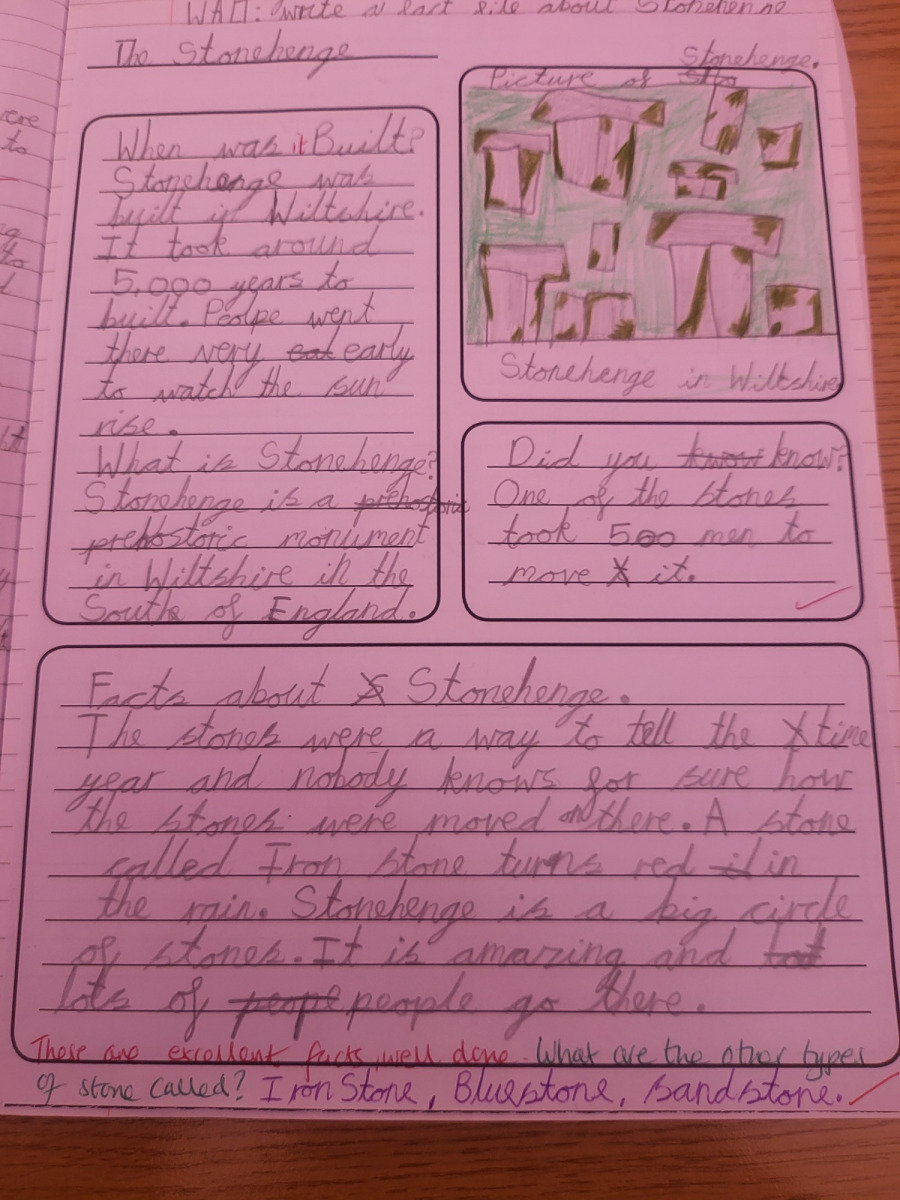 WALT: write a fact file about Stonehenge
The Stonehenge
When was it Built?
Stonehenge was
built in Wiltshire.
It took around
5,000 years to
built. Peolpe went
there very eat early
to watch the sun
rise.
What is Stonehenge?
Stonehenge is a prehostoric
prehostoric monument
in Wiltshire in the
South of England.
Stonehenge.
Picture of Sto
Stonehenge in Wiltshire
Did you kwow know?
One of the stones
took 500 men to
move it.
Facts about S Stonehenge.
The stones were a way to tell the time
year and nobody knows for sure how
the stones were moved on there. A stone
called Iron stone turns red in
the rain. Stonehenge is a big circle
of stones. It is amazing and lot
lots of peope people go there.
These are excellent facts, well done. What are the other types
of stone called? Iron Stone, Bluestone, sandstone.